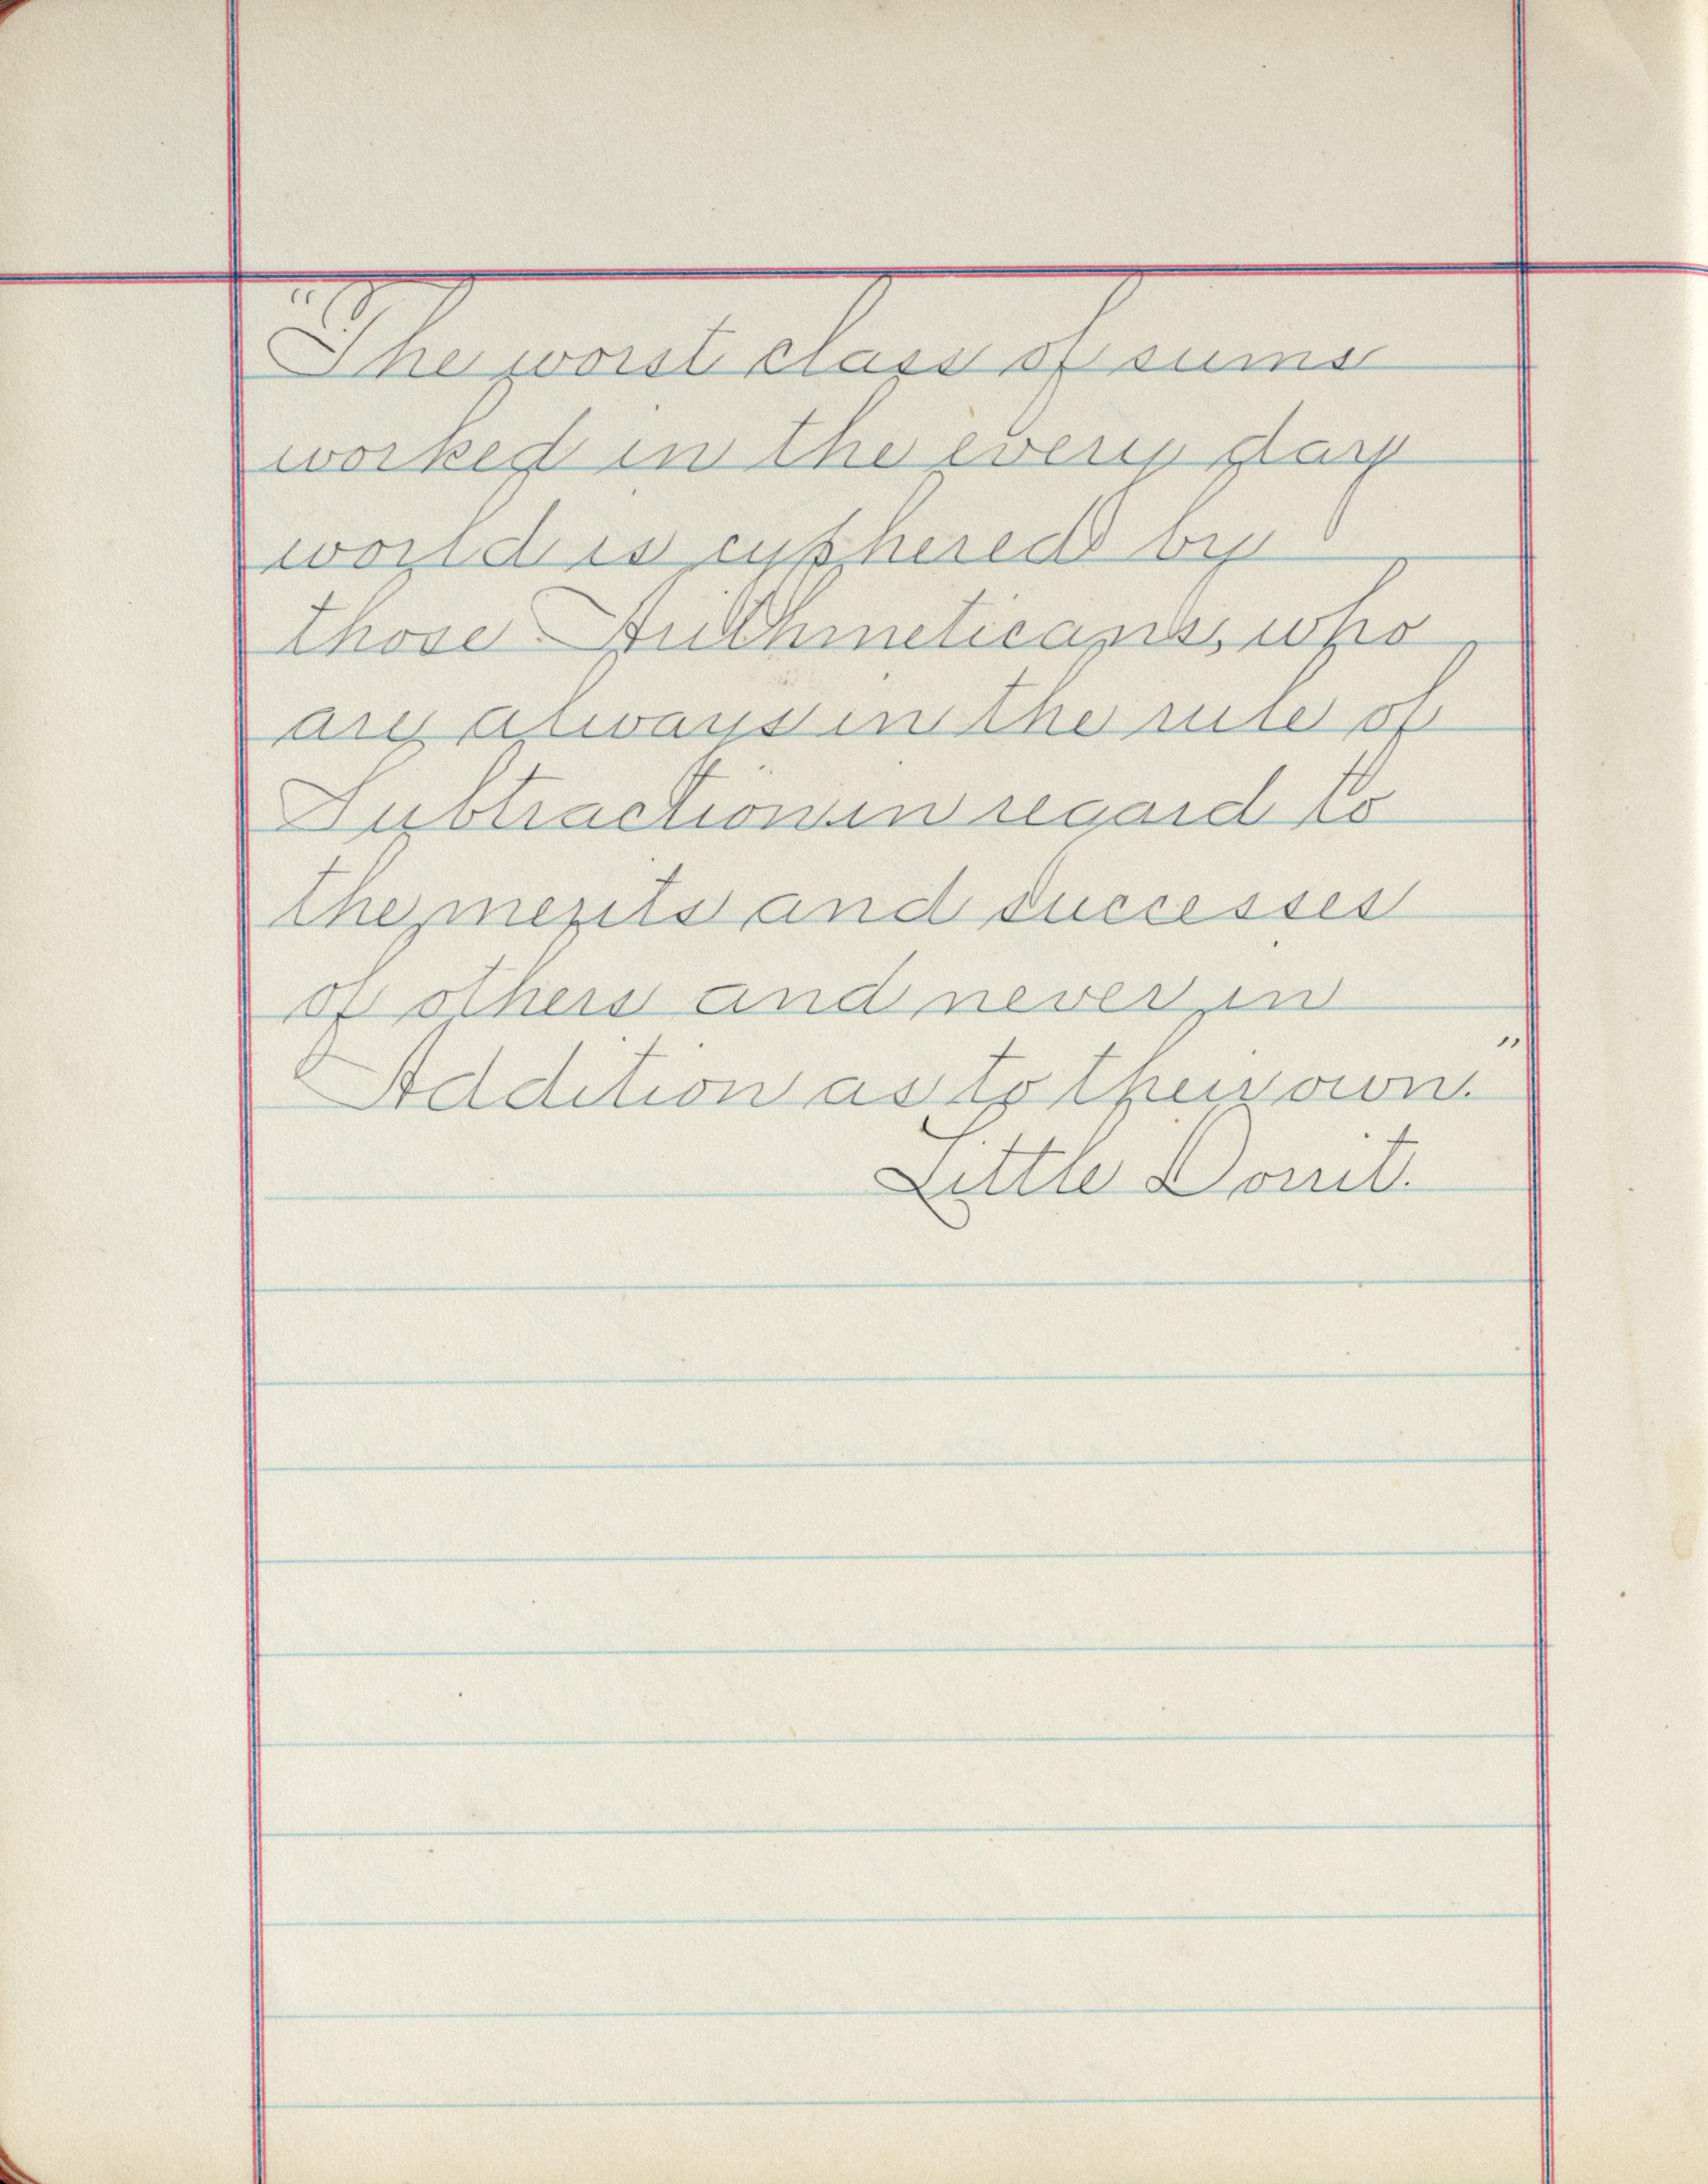 "The worst class of sums
worked in the every day
world is cyphered by
those Arithmeticans, who
are always in the rule of
Subtraction in regard to
the merits and successes
of others and never in
Addition as to their own."
Little Dorrit.